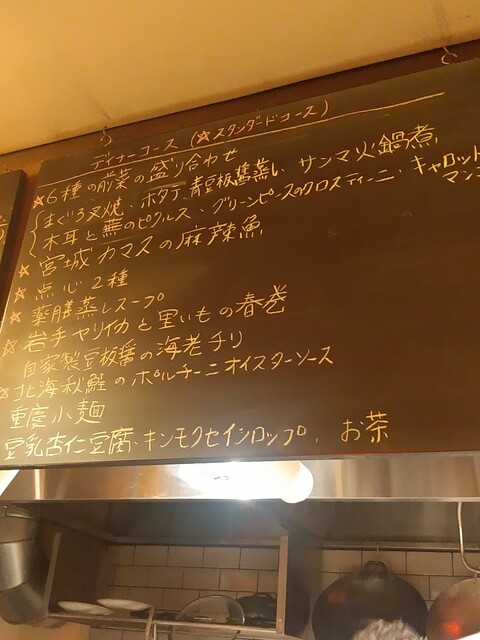 ディナーコース (☆スタンダードコース)
☆6種の前菜の盛り合わせ
まぐろ叉焼、ホタテ、青豆板醤蒸し、サンマ火鍋煮
木耳と蕪のピクルス、グリーンピースのクロスティーニ、キャロット
マン
☆宮城カマスの麻辣魚
☆点心2種
☆薬膳蒸しスープ
☆岩手ヤリイカと里いもの春巻
自家製豆板醤の海老チリ
☆北海秋鮭のポルチーニオイスターソース
重慶小麺
豆乳杏仁豆腐・キンモクセイシロップ、お茶